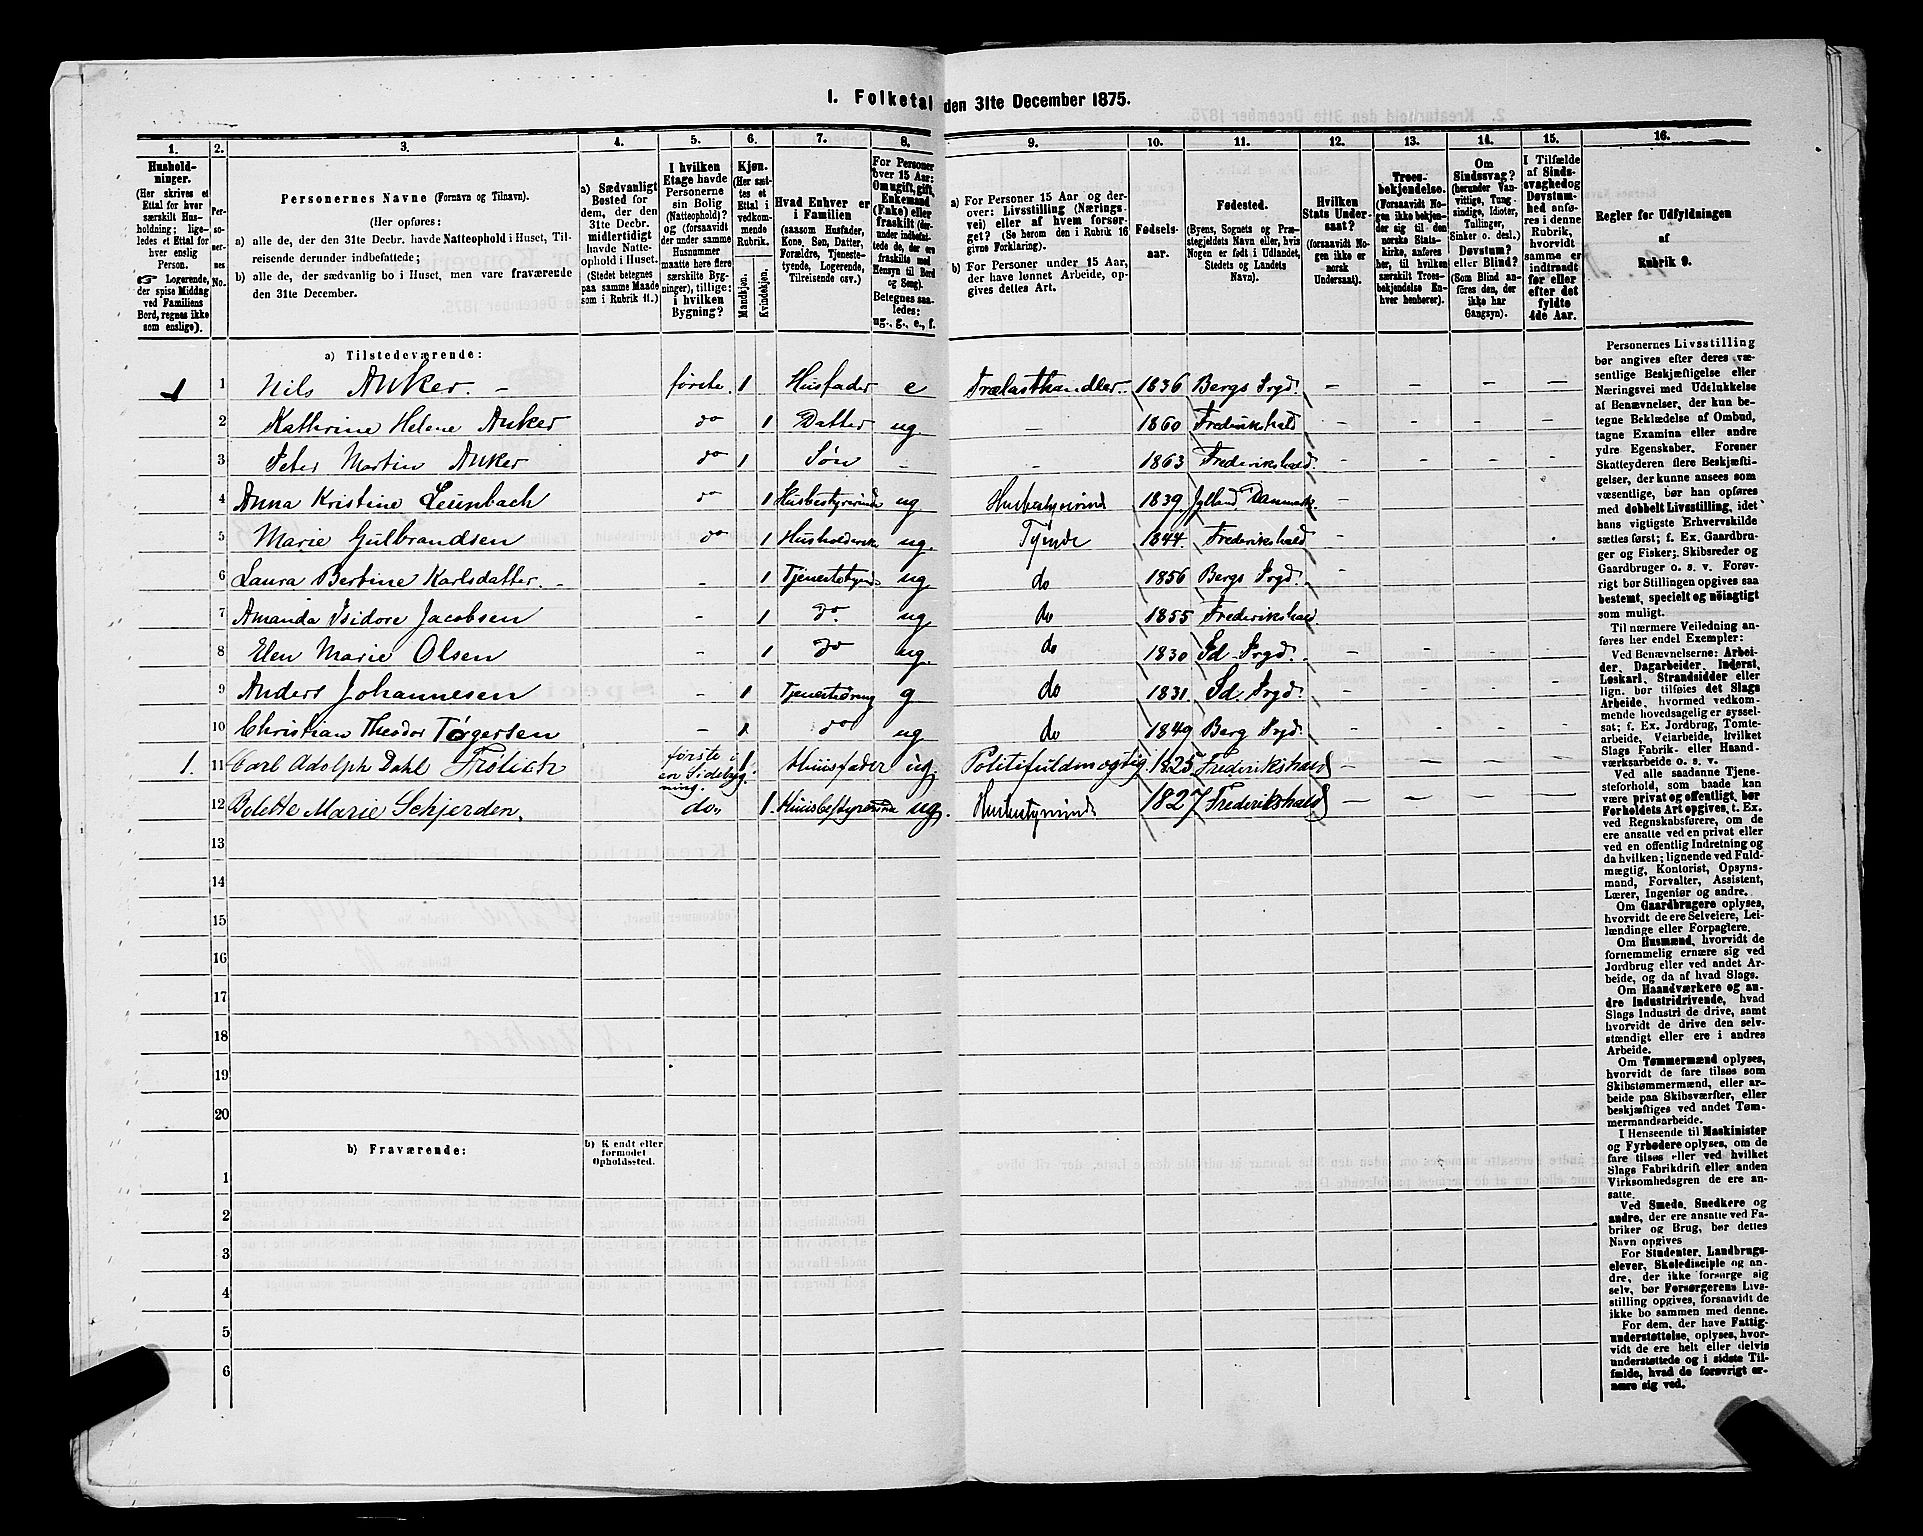 I. Folketal den 31te December 1875.
1. 2. 3. 4. 5. 6. 7. 8. 9. 10. 11. 12. 13. 14. 15. 16.
Hushold-
ninger.
(Her skrives et
Ettal for hver
særskilt Hus-
holdning; lige-
ledes et Ettal for
hver enslig
Person.
Logerende,
der spise Middag
ved Familiens
Bord, regnes ikke
som enslige).
Per-
soner-
nes
No.
Personernes Navne (Fornavn og Tilnavn).
(Her opføres:
a) alle de, der den 31te Decbr. havde Natteophold i Huset, Til-
reisende derunder indbefattede;
b) alle de, der sædvanlig bo i Huset, men vare fraværende
den 31te December.
a) Sædvanligt
Bosted for
dem, der den
31te Decbr.
midlertidigt
havde Natte-
ophold i Huset.
(Stedet betegnes
paa samme Maade
som i Rubrik 11.)
I hvilken
Etage havde
Personerne
sin Bolig
(Natteophold)?
og (forsaavidt
der under samme
Husnummer
maatte høre flere
særskilte Byg-
ninger), tillige:
i hvilken
Bygning?
Kjøn.
(Her sæt-
tes et
Ettal i
vedkom-
mende
Rubrik.)
Mandkjøn.
Kvindekjøn.
Hvad Enhver er
i Familien
(saasom Husfader,
Kone, Søn, Datter,
Forældre, Tjeneste-
tyende, Logerende,
Tilreisende osv.)
For Personer
over 15 Aar:
Om ugift, gift,
Enkemand
(Enke) eller
fraskilt (der-
under indbefat-
tede de, der ere
fraskilte med
Hensyn til Bord
og Seng).
Betegnes saa-
ledes:
ug., g., e., f.
a) For Personer 15 Aar og der-
over: Livsstilling (Nærings-
vei) eller af hvem forsør-
get? (Se herom den i Rubrik 16
givne Forklaring).
b) For Personer under 15 Aar,
der have lønnet Arbeide, op-
gives dettes Art.
Fødsels-
aar.
Fødested.
(Byens, Sognets og Præ-
stegjeldets Navn eller, hvis
Nogen er født i Udlandet,
Stedets og Landets
Navn).
Hvilken
Stats Under-
saat?
(forsaavidt No-
gen ikke er
norsk
Undersaat).
Troes-
bekjendelse.
(Forsaavidt No-
gen ikke bekjen-
der sig til den
norske Stats-
kirke, anføres
her, til hvilken
særskilt Troes-
bekjendelse En-
hver henhører).
Om
Sindssvag?
(herunder Van-
vittige, Tung-
sindige, Idioter,
Tullinger,
Sinker o. desl.)
Døvstum?
eller Blind?
(Som Blind an-
føres den, der
ikke har
Gangsyn).
I Tilfælde
af Sinds-
svaghed og
Døvstum-
hed anfø-
res i denne
Rubrik,
hvorvidt
samme er
indtraadt
før eller
efter det
fyldte
4de Aar.
Regler for Udfyldningen
af
Rubrik 9.
a) Tilstedeværende:
1 1 Nils Anker. – første. 1 Husfader e Trælasthandler. 1836 Bergs Prgd. – – – –
2 Kathrine Helene Anker do 1 Datter ug – 1860 Frederikshald – – – –
3 Peter Martin Anker do 1 Søn – – 1863 Frederikshald. – – – –
4 Anna Kristine Leunbach do 1 Husbestyrerinde ug Husbestyrerind 1839. Jylland Danmark. –
5 Marie Gulbrandsen do 1 Husholderske ug. Tyende 1844. Frederikshald –
6 Laura Berbine Karlsdatter. – – 1 Tjenestetyende ug do 1856 Bergs Prgd. – – – –
7 Amanda Isidore Jacobsen – 1 do. ug do 1855 Frederikshald. – – – –
8 Elen Marie Olsen – 1 do ug. do 1830 Id Prgd. – – – –
9 Anders Johannesen – 1 Tjenestedreng g do 1831. Id. Prgd. – – – –
10 Christian Theodor Torgersen – 1 do ug do 1849 Berg Prgd. – – – –
1. 11 Carl Adolph Dahl Frølich første i
en Sidebyg-
ning. 1 Huusfader ug. Politifuldmægtig 1825 Frederikshald – – – –
12 Bolette Marie Schjerden, do. 1. Huusbestyrerinde ug. Husbestyrerinde 1827 Frederikshald – – – –
13
14
15
16
17
18
19
20
b) Fraværende:
b) Kjendt eller
formodet
Opholdssted.
1
2
3
4
5
6
Personernes Livsstilling
bør angives efter deres væ-
sentlige Beskjæftigelse eller
Næringsvei med Udelukkelse
af Benævnelser, der kun be-
tegne Beklædelse af Ombud,
tagne Examina eller andre
ydre Egenskaber. Forener
Skatteyderen flere Beskjæfti-
gelser, der kunne ansees som
væsentlige, bør han opføres
med dobbelt Livsstilling, idet
hans vigtigste Erhvervskilde
sættes først; f. Ex. Gaardbru-
ger og Fisker; Skibsreder og
Gaardbruger o. s. v. Forøv-
rigt bør Stillingen opgives saa
bestemt, specielt og nöiagtigt
som muligt.
Til nærmere Veiledning an-
føres her endel Exempler:
Ved Benævnelserne: Arbei-
der, Dagarbeider, Inderst,
Løskarl, Strandsidder eller
lign. bør tilføies det Slags
Arbeide, hvormed vedkom-
mende hovedsagelig er syssel-
sat; f. Ex. Jordbrug, Tomte-
arbeide, Veiarbeide, hvilket
Slags Fabrik- eller Haand-
værksarbeide o. s. v.
Ved alle saadanne Tjene-
steforhold, som baade kan
være privat og offentligt, bør
Forholdets Art opgives, t. Ex.
ved Regnskabsførere, om de
ere ansatte ved en privat eller
ved en offentlig Indretning og
da hvilken; lignende ved Fuld-
mægtig, Kontorist, Opsyns-
mand, Forvalter, Assistent,
Lærer, Ingeniør og andre.
Om Gaardbrugere oplyses,
hvorvidt de ere Selveiere, Lei-
lændinge eller Forpagtere.
Om Husmænd, hvorvidt de
fornemmelig ernære sig ved
Jordbrug eller ved andet Ar-
beide, og da af hvad Slags.
Om Haandværkere og an-
dre Industridrivende, hvad
Slags Industri de drive, samt
hvorvidt de drive den selv-
stændigt eller ere i andres
Arbeide.
Om Tømmermænd oplyses,
hvorvidt de fare tilsøs som
Skibstømmermænd, eller ar-
beide paa Skibsværfter, eller
beskjæftiges ved andet Tøm-
mermandsarbeide.
I Henseende til Maskinister
og Fyrbødere oplyses, om de
fare tilsøs eller ved hvilket
Slags Fabrikdrift eller anden
Virksomhedsgren de ere an-
satte.
Ved Smede, Snedkere og
andre, der ere ansatte ved Fa-
briker og Brug, bør dettes
Navn opgives
For Studenter, Landbrugs-
elever, Skoledisciple og an-
dre, der ikke forsørge sig
selv, bør Forsørgerens Livs-
stilling opgives, forsaavidt de
ikke bo sammen med denne.
For dem, der have Fattig-
understøttelse, oplyses, hvor-
vidt de ere helt eller delvis
understøttede og i sidste Til-
fælde, hvad de forøvrigt er-
nære sig ved.